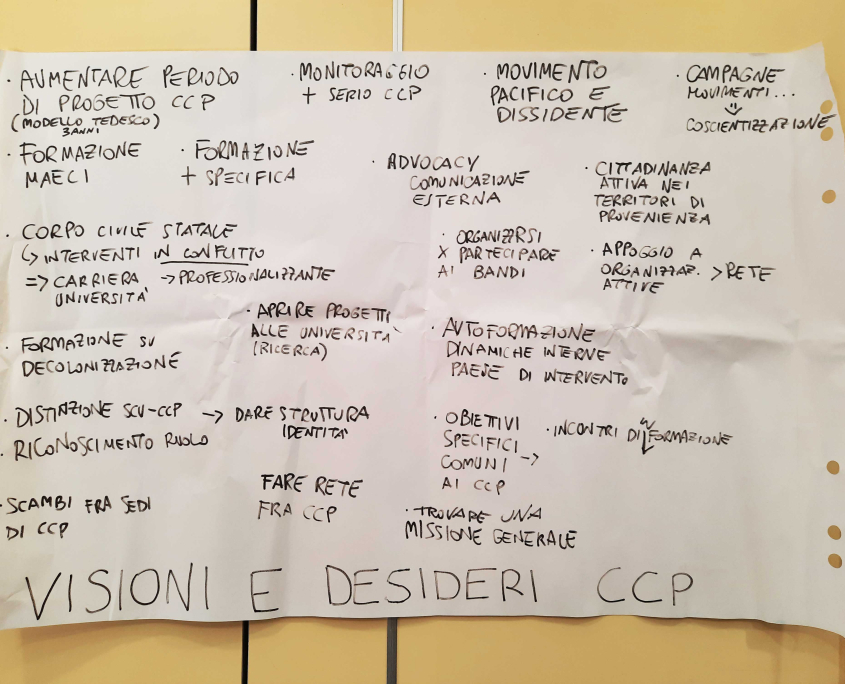 · AUMENTARE PERIODO
DI PROGETTO CCP
(MODELLO TEDESCO)
3ANNI
· MONITORAGGIO
+ SERIO CCP
· MOVIMENTO
PACIFICO E
DISSIDENTE
· CAMPAGNE
MOVIMENTI...
COSCIENTIZZAZIONE
· FORMAZIONE
MAECI
· FORMAZIONE
+ SPECIFICA
· ADVOCACY
COMUNICAZIONE
ESTERNA
· CITTADINANZA
ATTIVA NEI
TERRITORI DI
PROVENIENZA
· CORPO CIVILE STATALE
↳ INTERVENTI IN CONFLITTO
=> CARRIERA → PROFESSIONALIZZANTE
UNIVERSITÀ
· ORGANIZZRSI
X PARTECIPARE
AI BANDI
· APPOGGIO A
ORGANIZZAZ. > RETE
ATTIVE
· FORMAZIONE SU
DECOLONIZZAZIONE
· APRIRE PROGETTI
ALLE UNIVERSITA'
(RICERCA)
· AUTOFORMAZIONE
DINAMICHE INTERNE
PAESE DI INTERVENTO
· DISTINZIONE SCU-CCP → DARE STRUTTURA
IDENTITÀ
· RICONOSCIMENTO RUOLO
· OBIETTIVI
SPECIFICI →
COMUNI
AI CCP
· INCONTRI DI FORMAZIONE
IN
· SCAMBI FRA SEDI
DI CCP
FARE RETE
FRA CCP
· TROVARE UNA
MISSIONE GENERALE
VISIONI E DESIDERI CCP